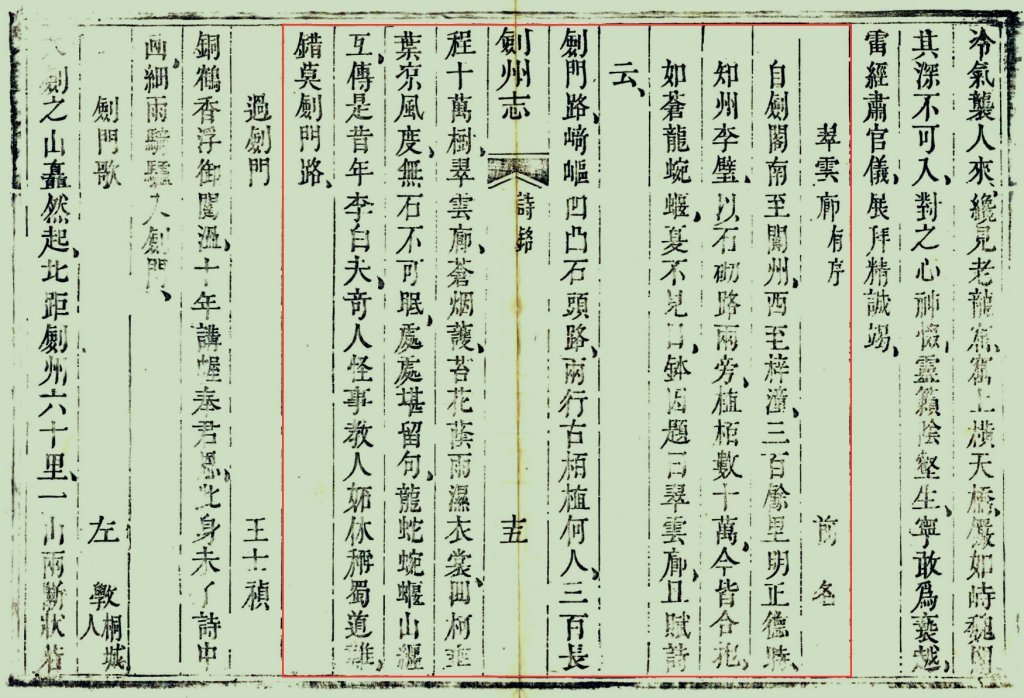 冷氣襲人來纔見老龍窟窟上橫天橋儼如時魏閣
其深不可入對之心神慑靈籟陰壑生寧敢爲褻越
雷經肅官儀展拜精誠竭
翠雲廊有序　前名
自劍閣南至閬州西至梓潼三百餘里明正德時
知州李璧以石砌路兩旁植柏數十萬今皆合抱
如蒼龍蜿蜒夏不見日鉢因題曰翠雲廊且賦詩
云
劍門路崎嶇凹凸石頭路兩行古柏植何人三百長
劍州志　詩銘
程十萬樹翠雲廊蒼烟護苔花蔭雨濕衣裳回柯垂
葉凉風度無石不可眠處處堪留句龍蛇蜿蜒山纒
互傳是昔年李白夫奇人怪事教人妬休稱蜀道難
錯莫劍門路
過劍門　王士禎
銅鶴香浮御閣溫十年講幄奉君恩此身未了詩中
画細雨騎驢入劍門
劍門歌　左　桐城人
之山矗然起北距劍州六十里一山兩斷狀若